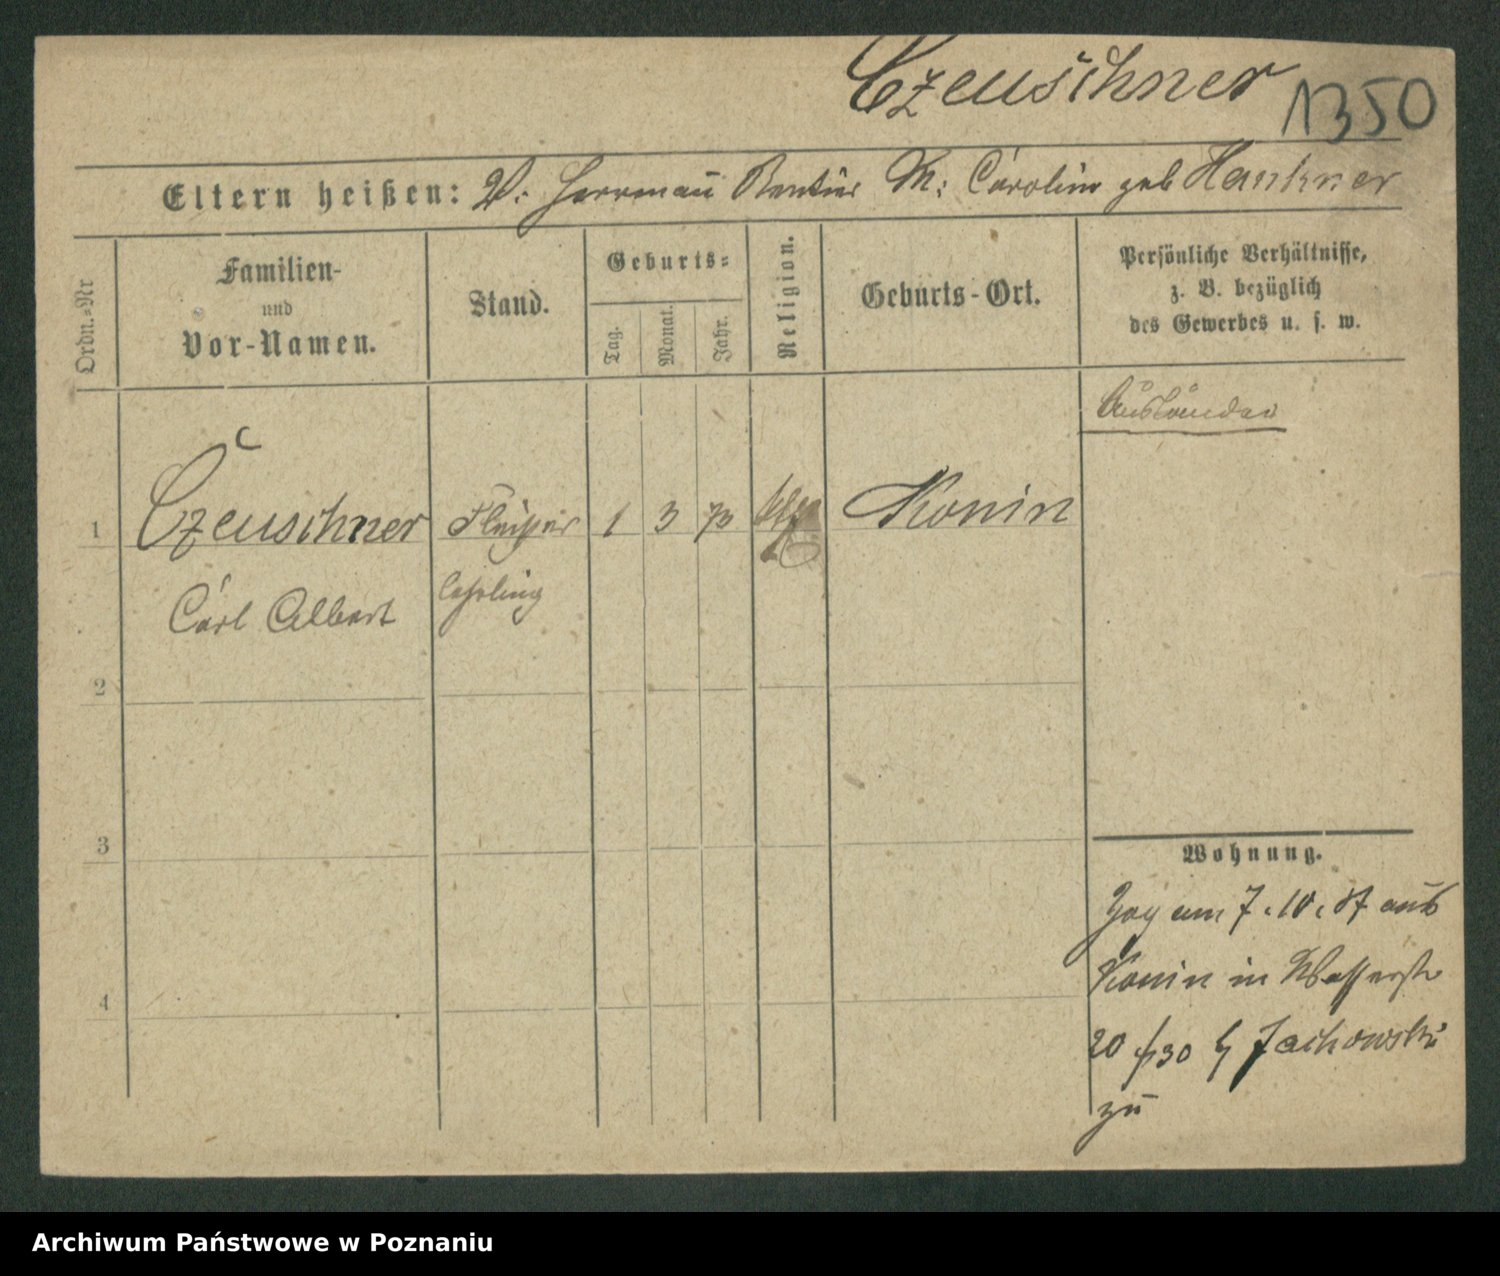 Czeuschner 1350
Eltern heißen: V: Herrmañ Rentier M: Carolin geb Hankner
Ordn.-Nr
Familien-
und
Vor-Namen.
Stand.
Geburts-
Tag.
Monat.
Jahr.
Religion.
Geburts-Ort.
Persönliche Verhältnisse,
z. B. bezüglich
des Gewerbes u. s. w.
Ausländer
1 Czeuschner Fleischer 1 3 70 Konin
Carl Albert lehrling
2
3
4
Wohnung.
Zog am 7.10.87 aus
Konin in Wasserstr
20 30 b Jachowski
zu
Archiwum Państwowe w Poznaniu